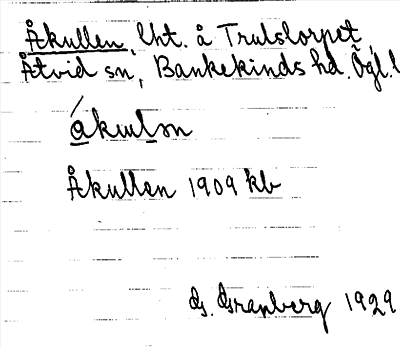 Åkullen, lht. å Trulstorpet,
Åtvid sn, Bankekinds hd. Ögl.
åkulən
Åkullen 1909 kb
G. Granberg 1929